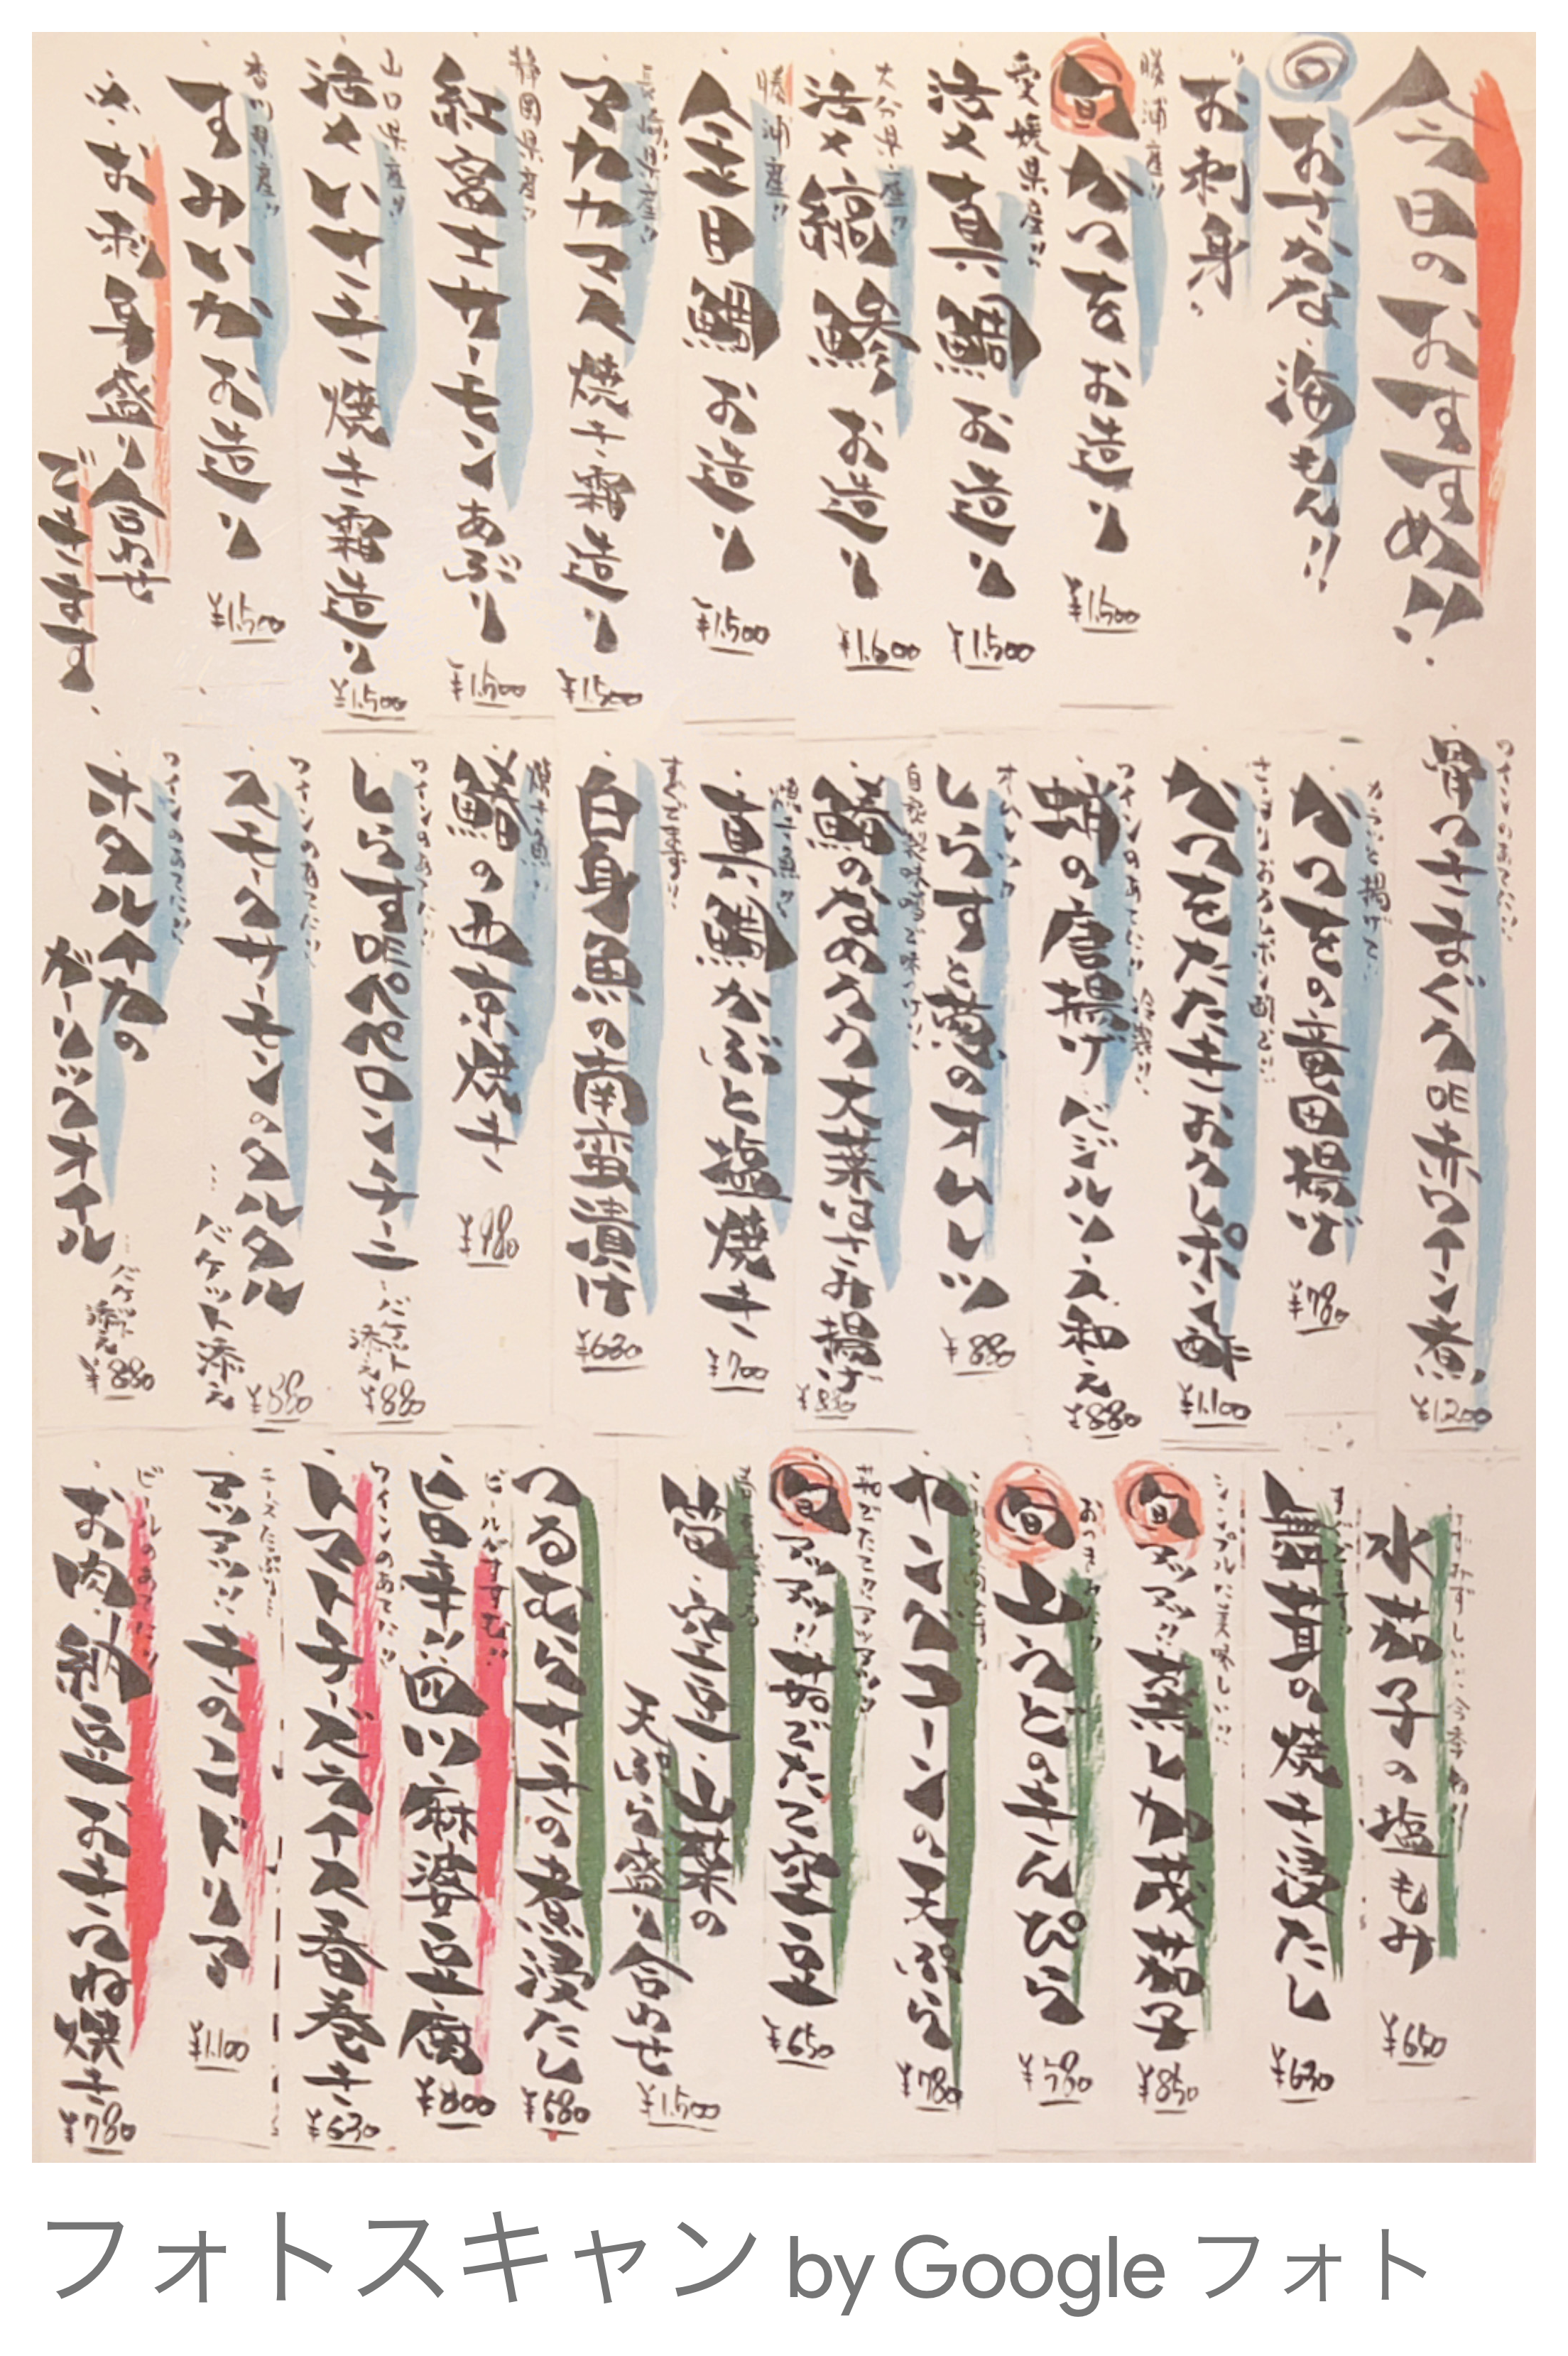 今日のおすすめ!!
◎おさかな・海もん!!
お刺身
勝浦産!!
旬 かつを お造り
¥1.500
愛媛県産!!
活〆真鯛 お造り
¥1.500
大分県産!!
活〆縞鯵 お造り
¥1.600
勝浦産!!
金目鯛 お造り
¥1.500
長崎県産!!
マカカマス 焼き霜造り
¥1.500
静岡県産!!
紅富士サーモン あぶり
¥1.500
山口県産!!
活〆いサキ 焼き霜造り
¥1.500
香川県産!!
すみいか お造り
¥1.500
お刺身盛り合わせ
できます
ワインのあてに!!
骨つきまぐろDE赤ワイン煮
¥1.200
カラッと揚げて!!
かつをの竜田揚げ
¥780
さっぱりおろしポン酢で!!
かつをたたきおろしポン酢
¥1.100
ワインのあてに!!
の唐揚げ バジルソース和え
¥880
オムレツ
しらすと葱のオムレツ
¥880
のなめろう大葉はさみ揚げ
焼き魚!!
真鯛かぶと塩焼き
¥700
すぐでます!!
白身魚の南蛮漬け
¥630
焼き魚!!
の西京焼き
¥980
ワインのあてに!!
しらすDEペペロンチーニ
バケット添え
¥880
ワインのあてに!!
スモークサーモンのタルタル
バケット添え
ワインのあてに!!
ホタルイカの
ガーリックオイル
バケット添え
¥880
みずみずしい!!
水茄子の塩もみ
¥650
すぐでます!!
舞茸の焼き浸だし
¥630
シンプルに美味しい!!
旬 アツアツ!! 蒸し加茂茄子
¥850
旬 山うどのきんぴら
ヤングコーンの天ぷら
¥780
旬 アツアツ!! 茹でたて空豆
¥650
筍・空豆・山菜の
天ぷら盛り合わせ
¥1.500
つるむらさきの煮浸だし
¥580
ビールがすすむ!!
旨辛!!四川麻婆豆腐
¥800
ワインのあてに!!
トマトチーズライス春巻き
¥630
チーズたっぷり
アツアツ!! きのこドリア
¥1.100
ビールのあてに!!
お肉・納豆おきつね焼き
¥780
フォトスキャン by Google フォト